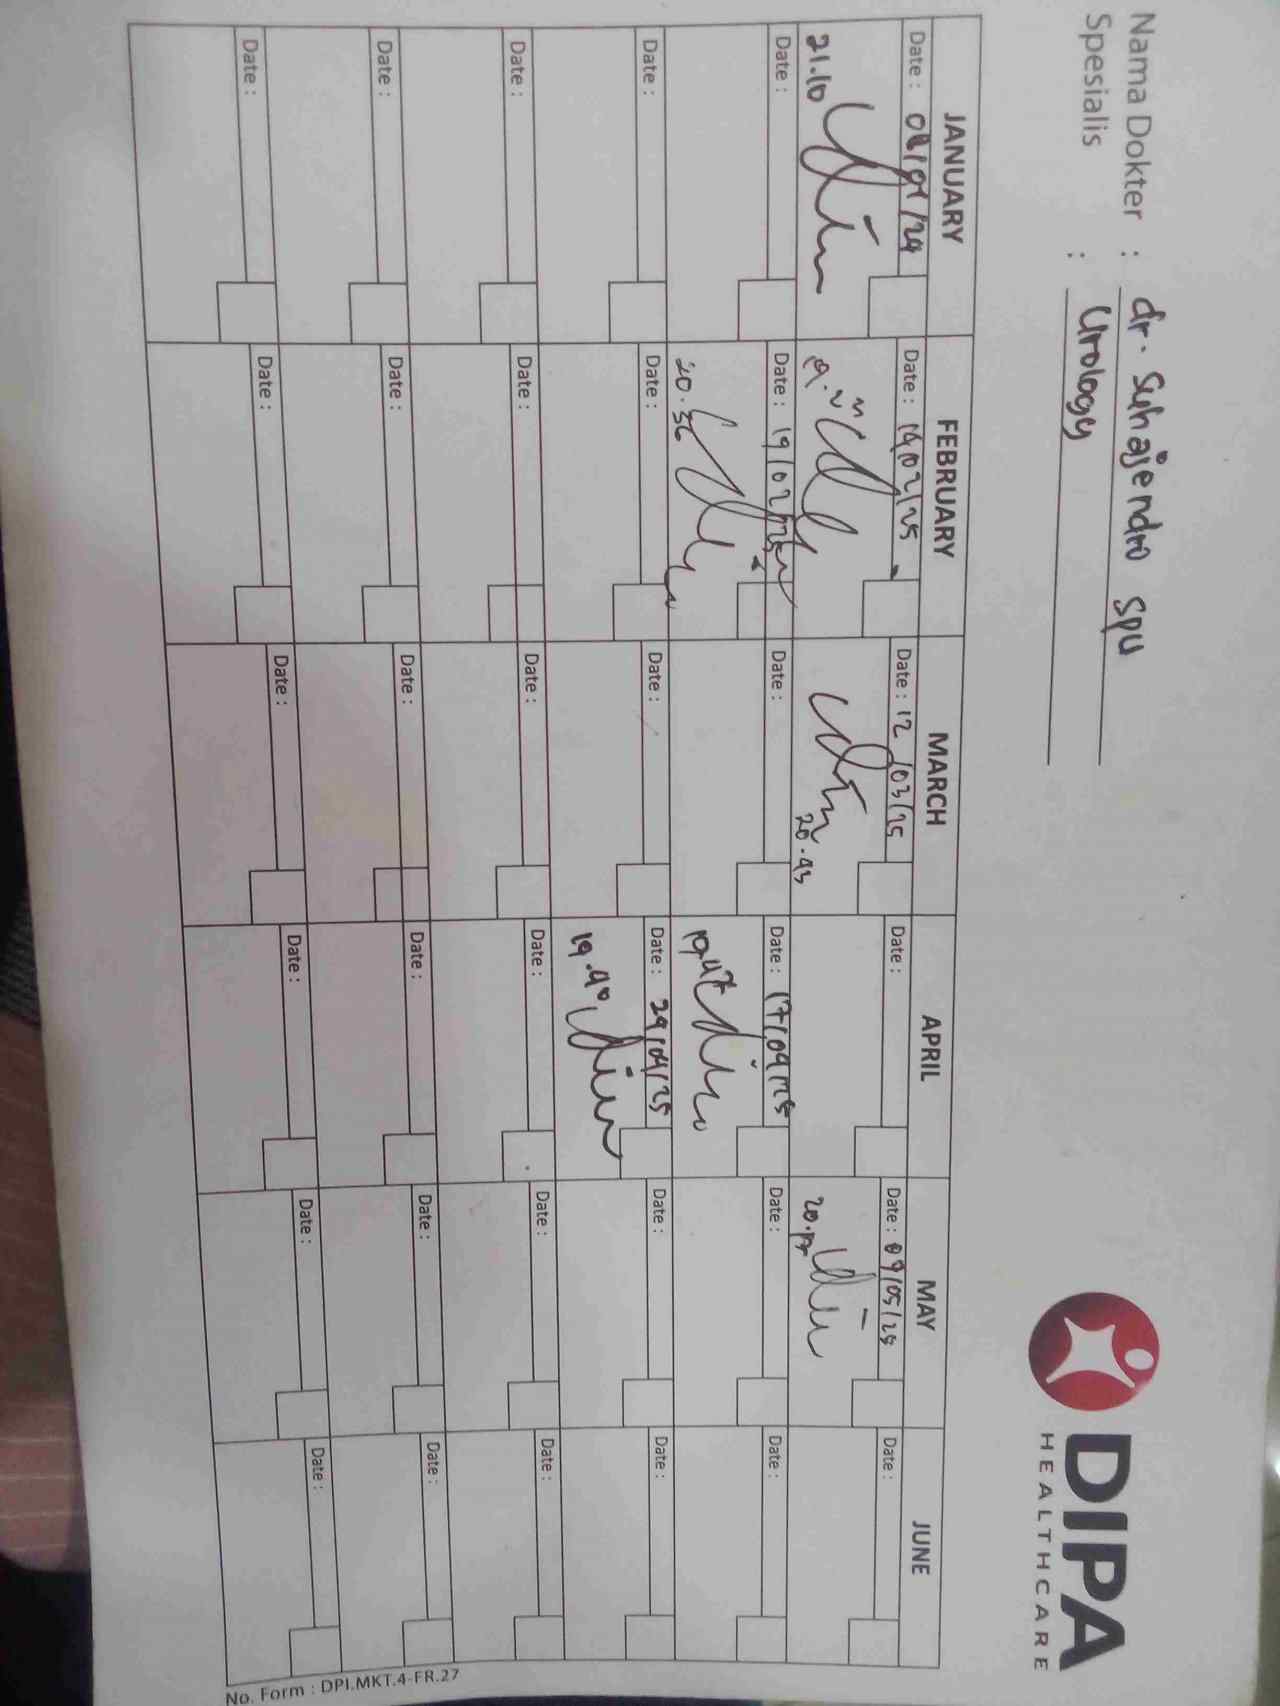 Nama Dokter : dr. Suhajendro SpU
Spesialis : Urology
DIPA
HEALTHCARE
JANUARY FEBRUARY MARCH APRIL MAY JUNE
Date : Date : 19/02/25 Date : 12/03/25 Date : Date : 09/05/25 Date :
21.10 20.43
Date : Date : 19/02/25 Date : Date : 17/04/25 Date : Date :
20.36 19.47
Date : Date : Date : Date : 29/04/25 Date : Date :
19.40
Date : Date : Date : Date : Date : Date :
Date : Date : Date : Date : Date : Date :
Date : Date : Date : Date : Date : Date :
No. Form : DPI.MKT.4-FR.27